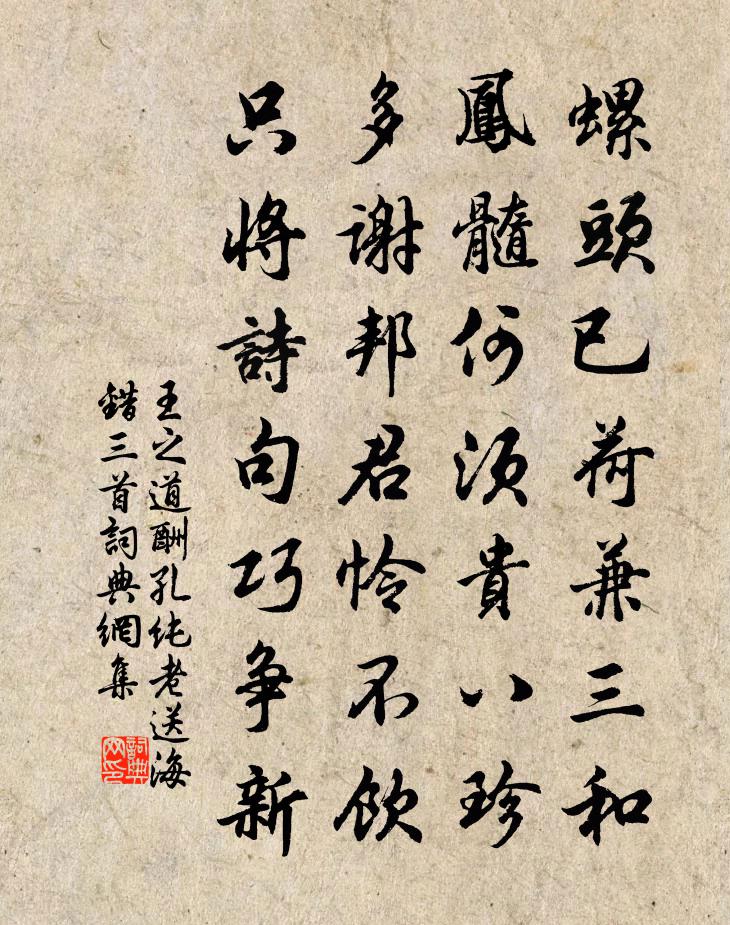 螺頭已荷兼三和
鳳髓何須貴八珍
多謝邦君怜不飲
只將詩句巧爭新
王之道酬孔純老送海
錯三首詞典網集
詞典
网印